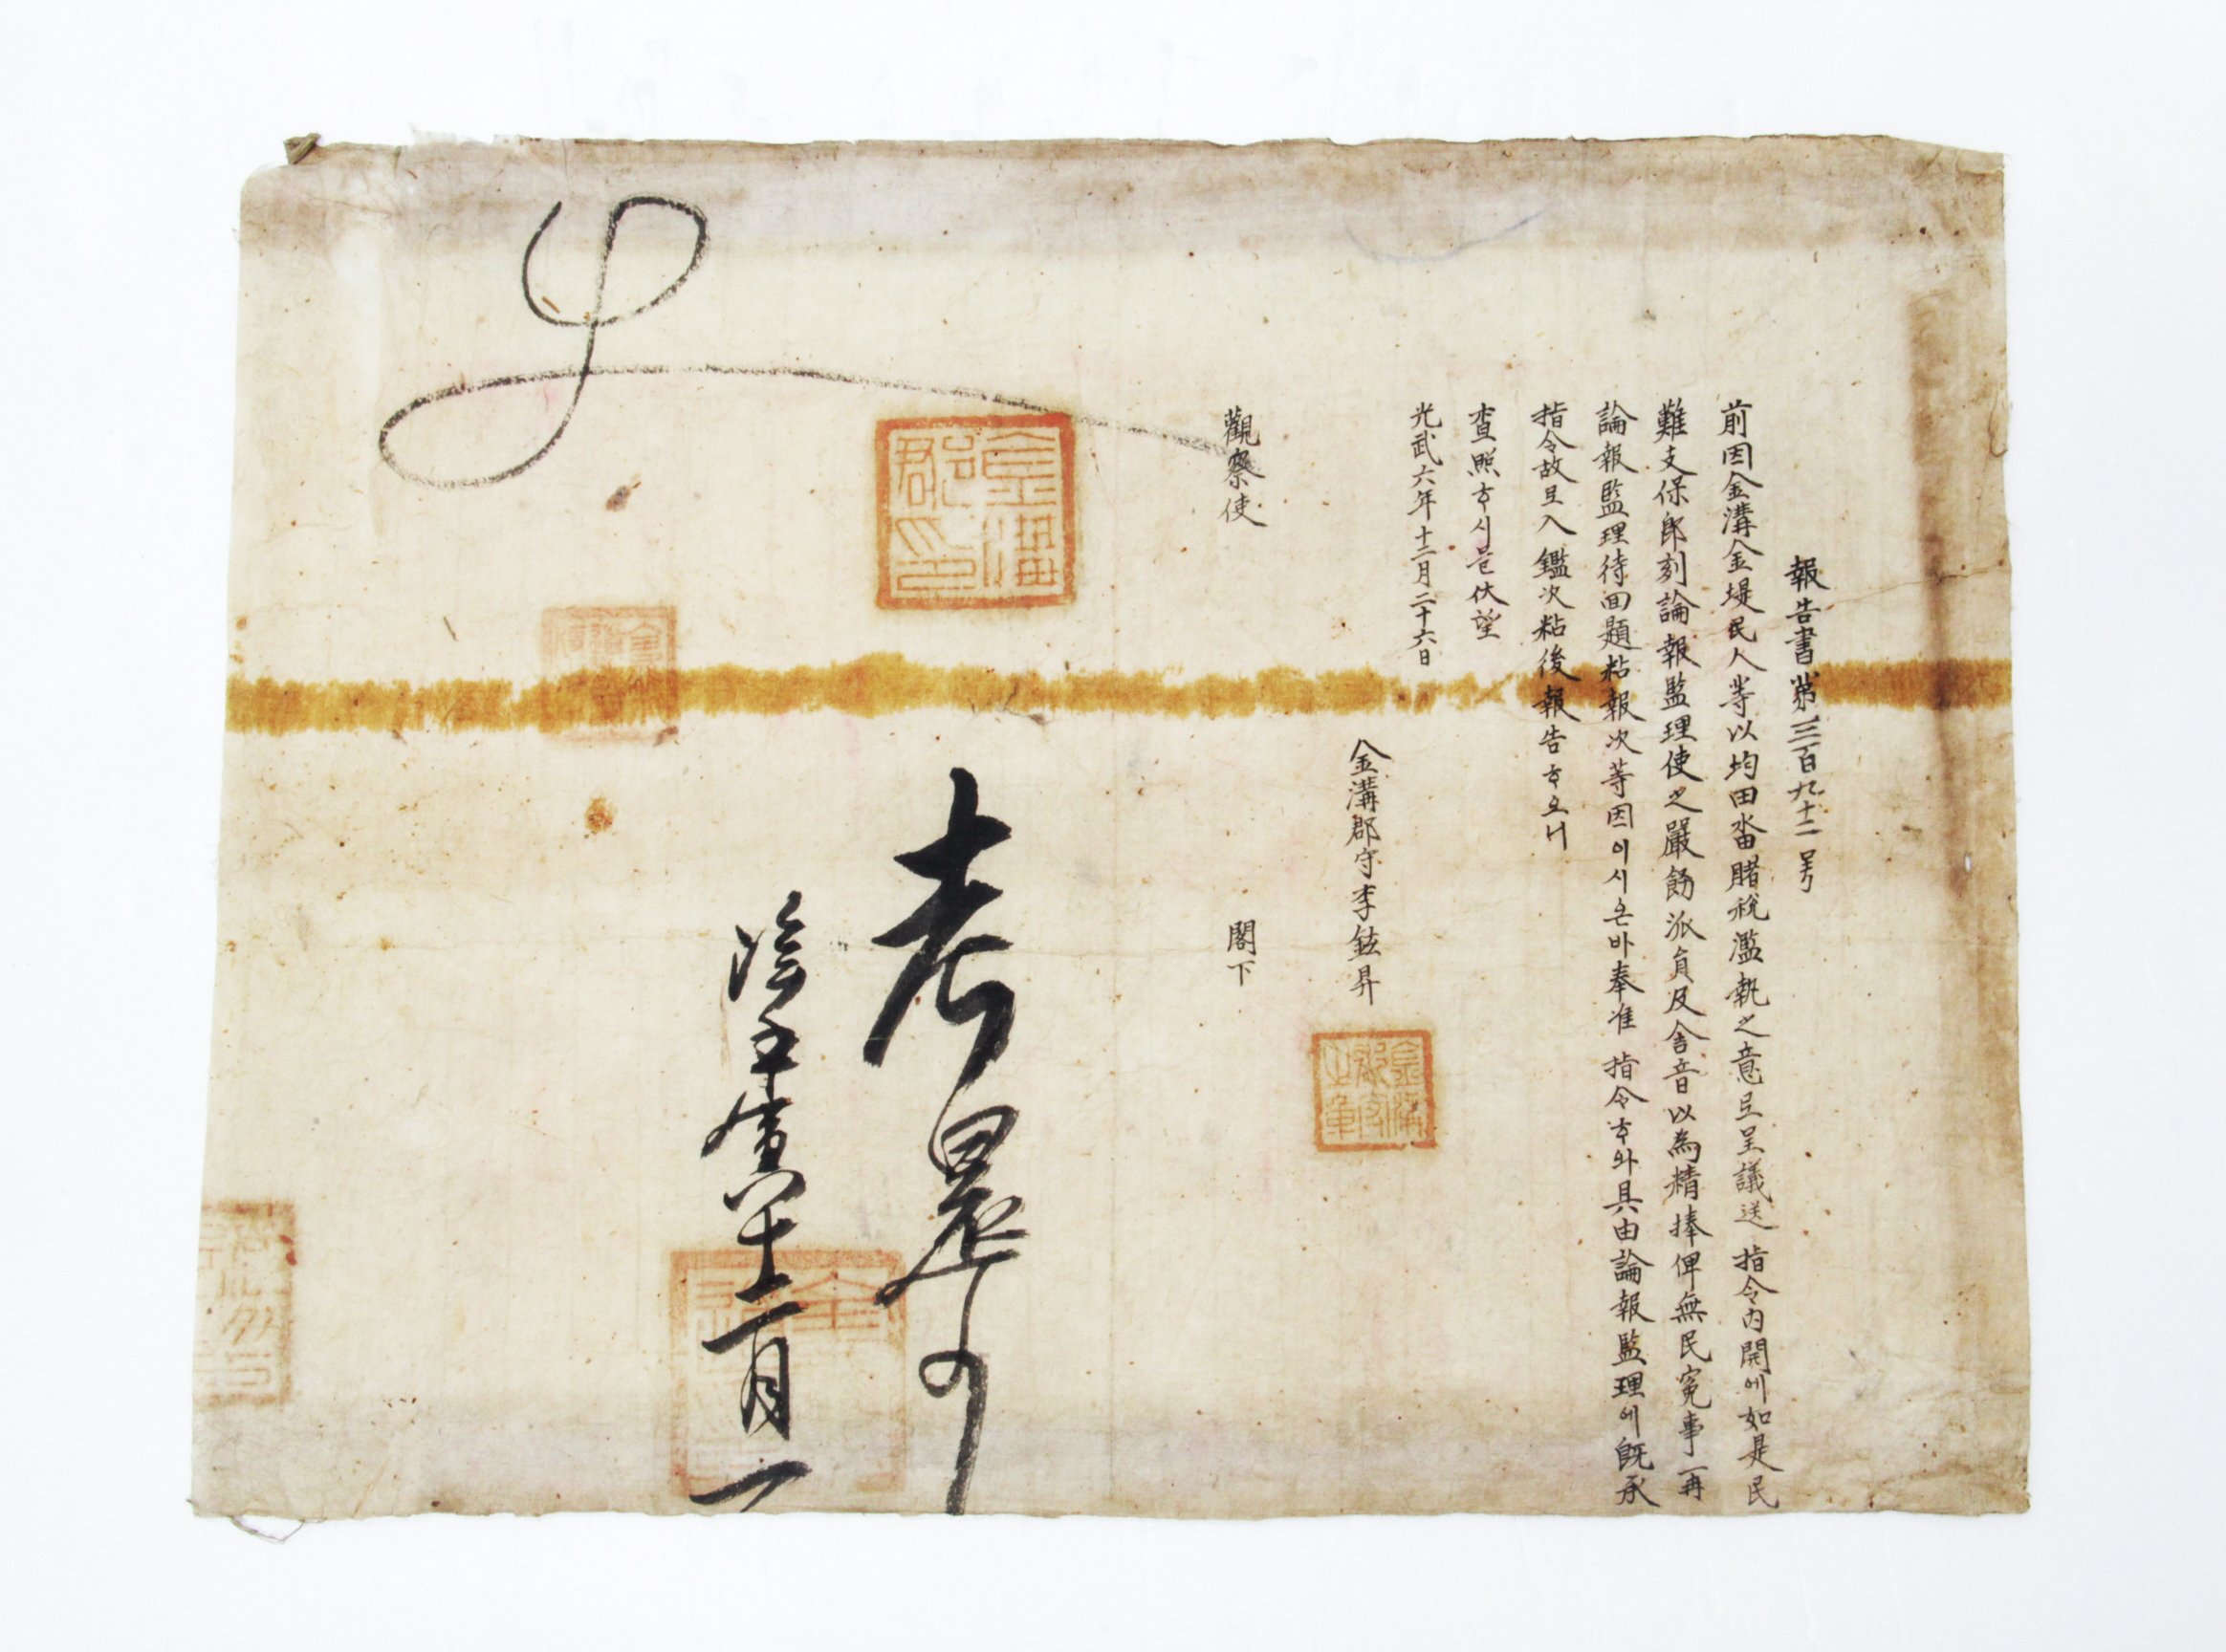 報告書 第三百九十二号
前因金溝金堤民人等以均田畓賭稅濫執之意로呈議送 指令內開에如是民
難支保卽刻論報監理使之嚴飭派員及舍音以爲精捧俾無民寃事 再
論報監理待回題粘報次等因이시온바奉准 指令ᄒᆞ와具由論報監理에旣承
指令故로入 鑑次粘後報告ᄒᆞ오니
査照ᄒᆞ시믈伏望
光武六年十二月二十六日
金溝郡守李鉉昇
觀察使 閣下
金溝郡印
金溝郡守之章
考旣
十二月